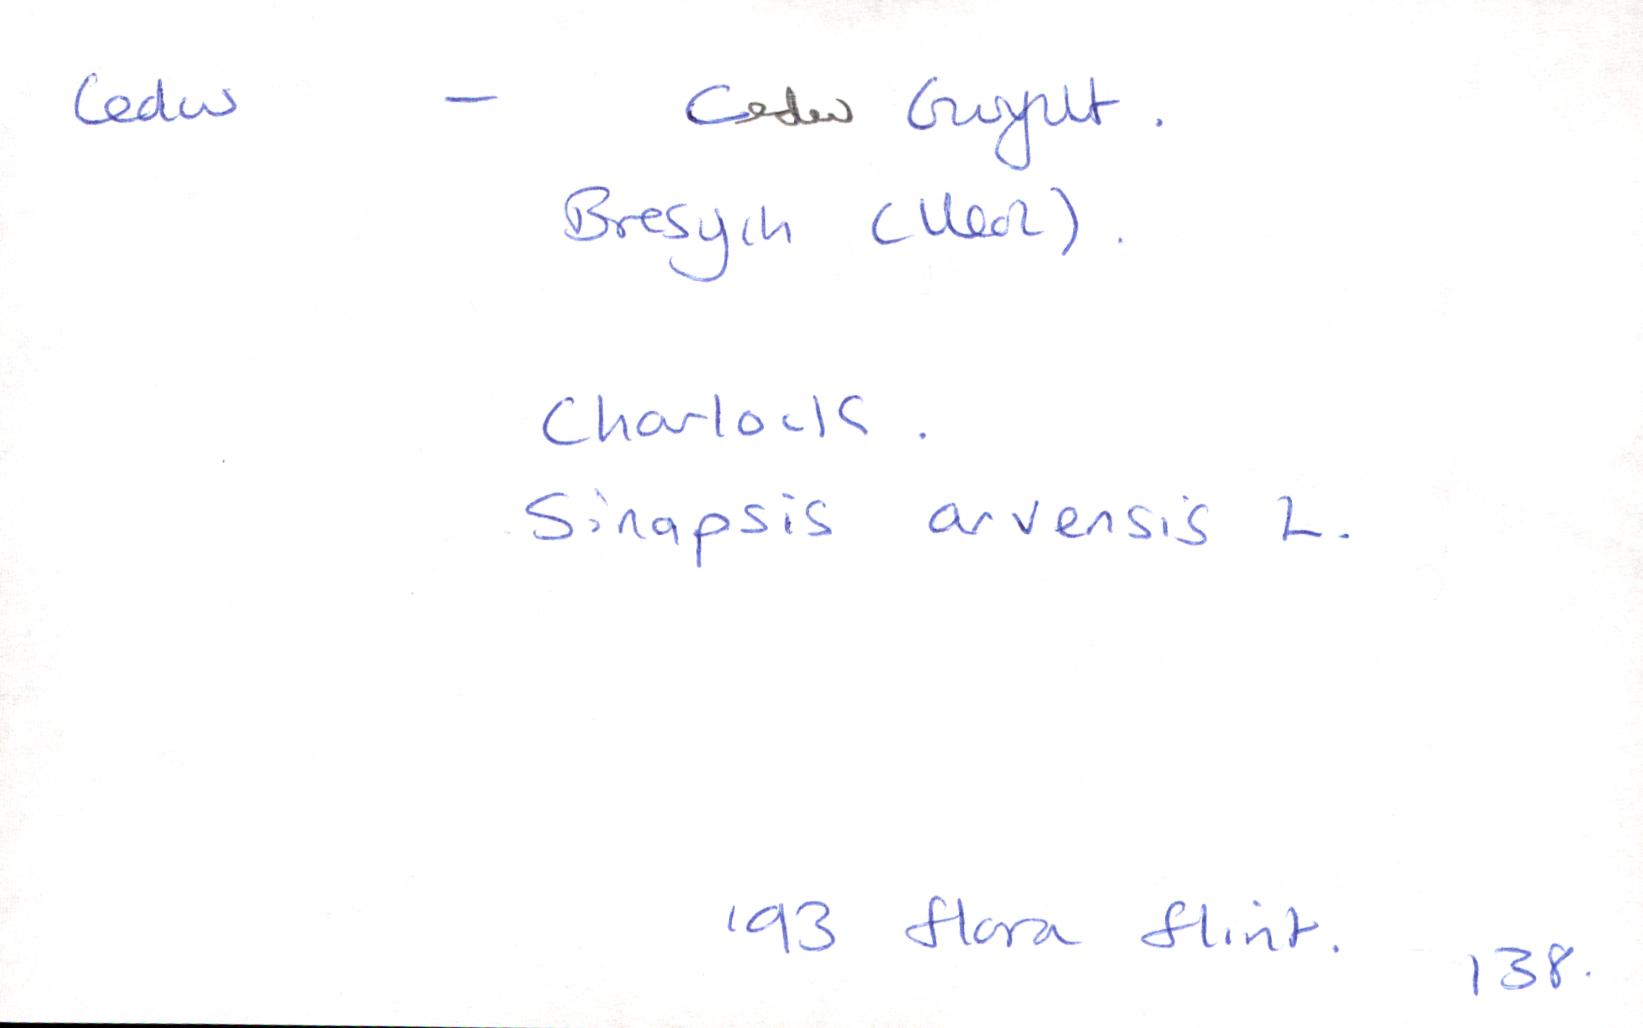 Cedw - Cedw Gwyllt.
Bresych (lleol).
Charlock.
Sinapsis arvensis L.
'93 flora flint.
138.